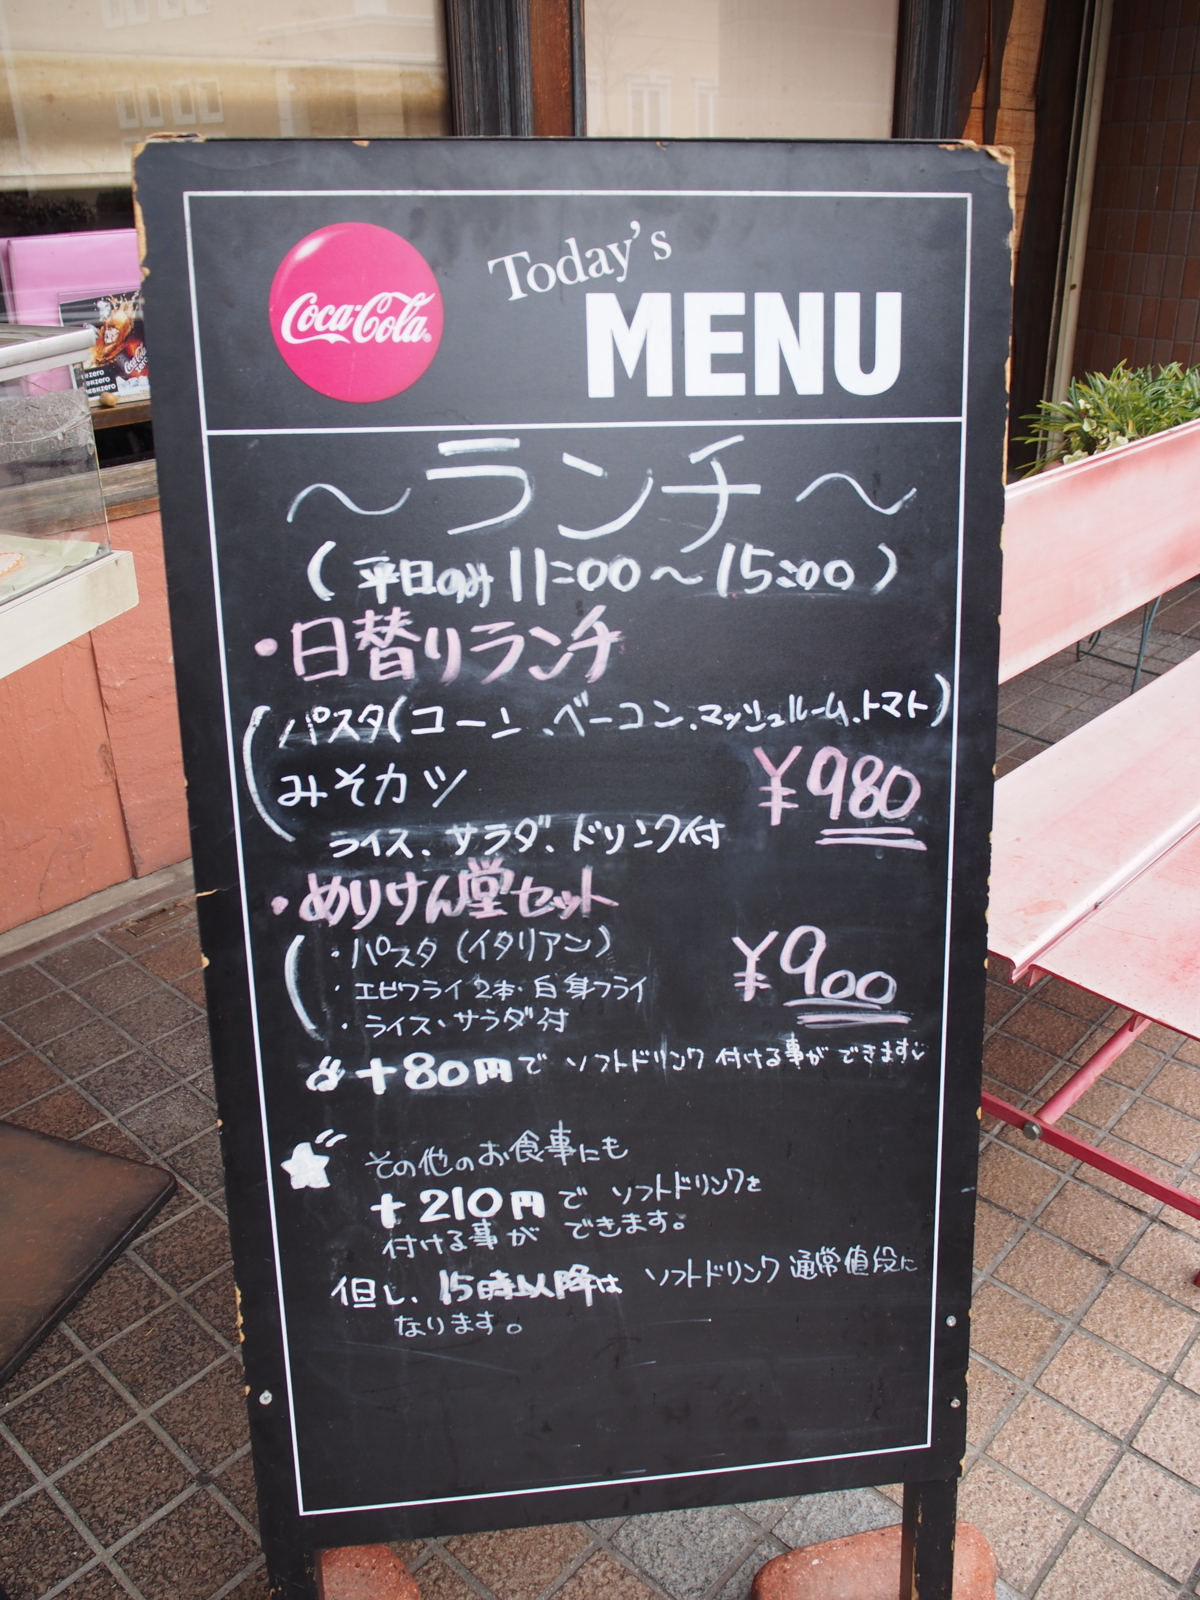 Coca-Cola
Today's
MENU
〜ランチ〜
(平日のみ 11:00〜15:00)
・日替りランチ
パスタ(コーン、ベーコン、マッシュルーム、トマト)
みそカツ
¥980
ライス、サラダ、ドリンク付
・めりけん堂セット
・パスタ(イタリアン)
¥900
・エビフライ2本・白身フライ
・ライス・サラダ付
+80円で ソフトドリンク 付ける事ができます
その他のお食事にも
+210円で ソフトドリンクを
付ける事が できます。
但し、15時以降は ソフトドリンク 通常値段に
なります。